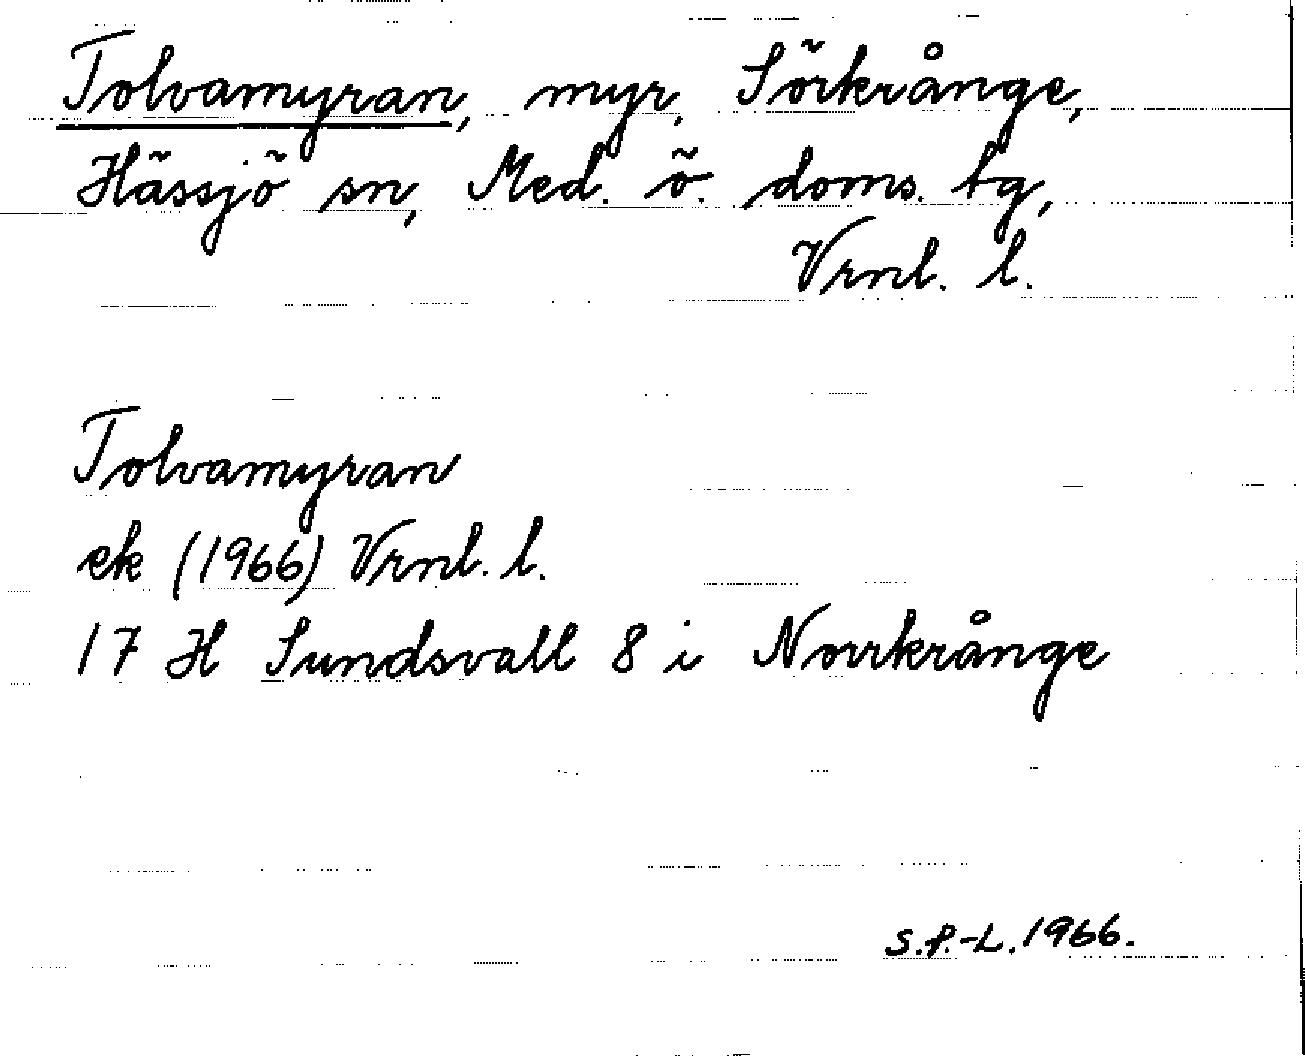 Tolvamyran, myr, Sörkrånge,
Hässjö sn, Med. ö. doms. tg,
Vrnl. l.
Tolvamyran
ek (1966) Vrnl. l.
17 H Sundsvall 8 i Norrkrånge
S.P.-L. 1966.